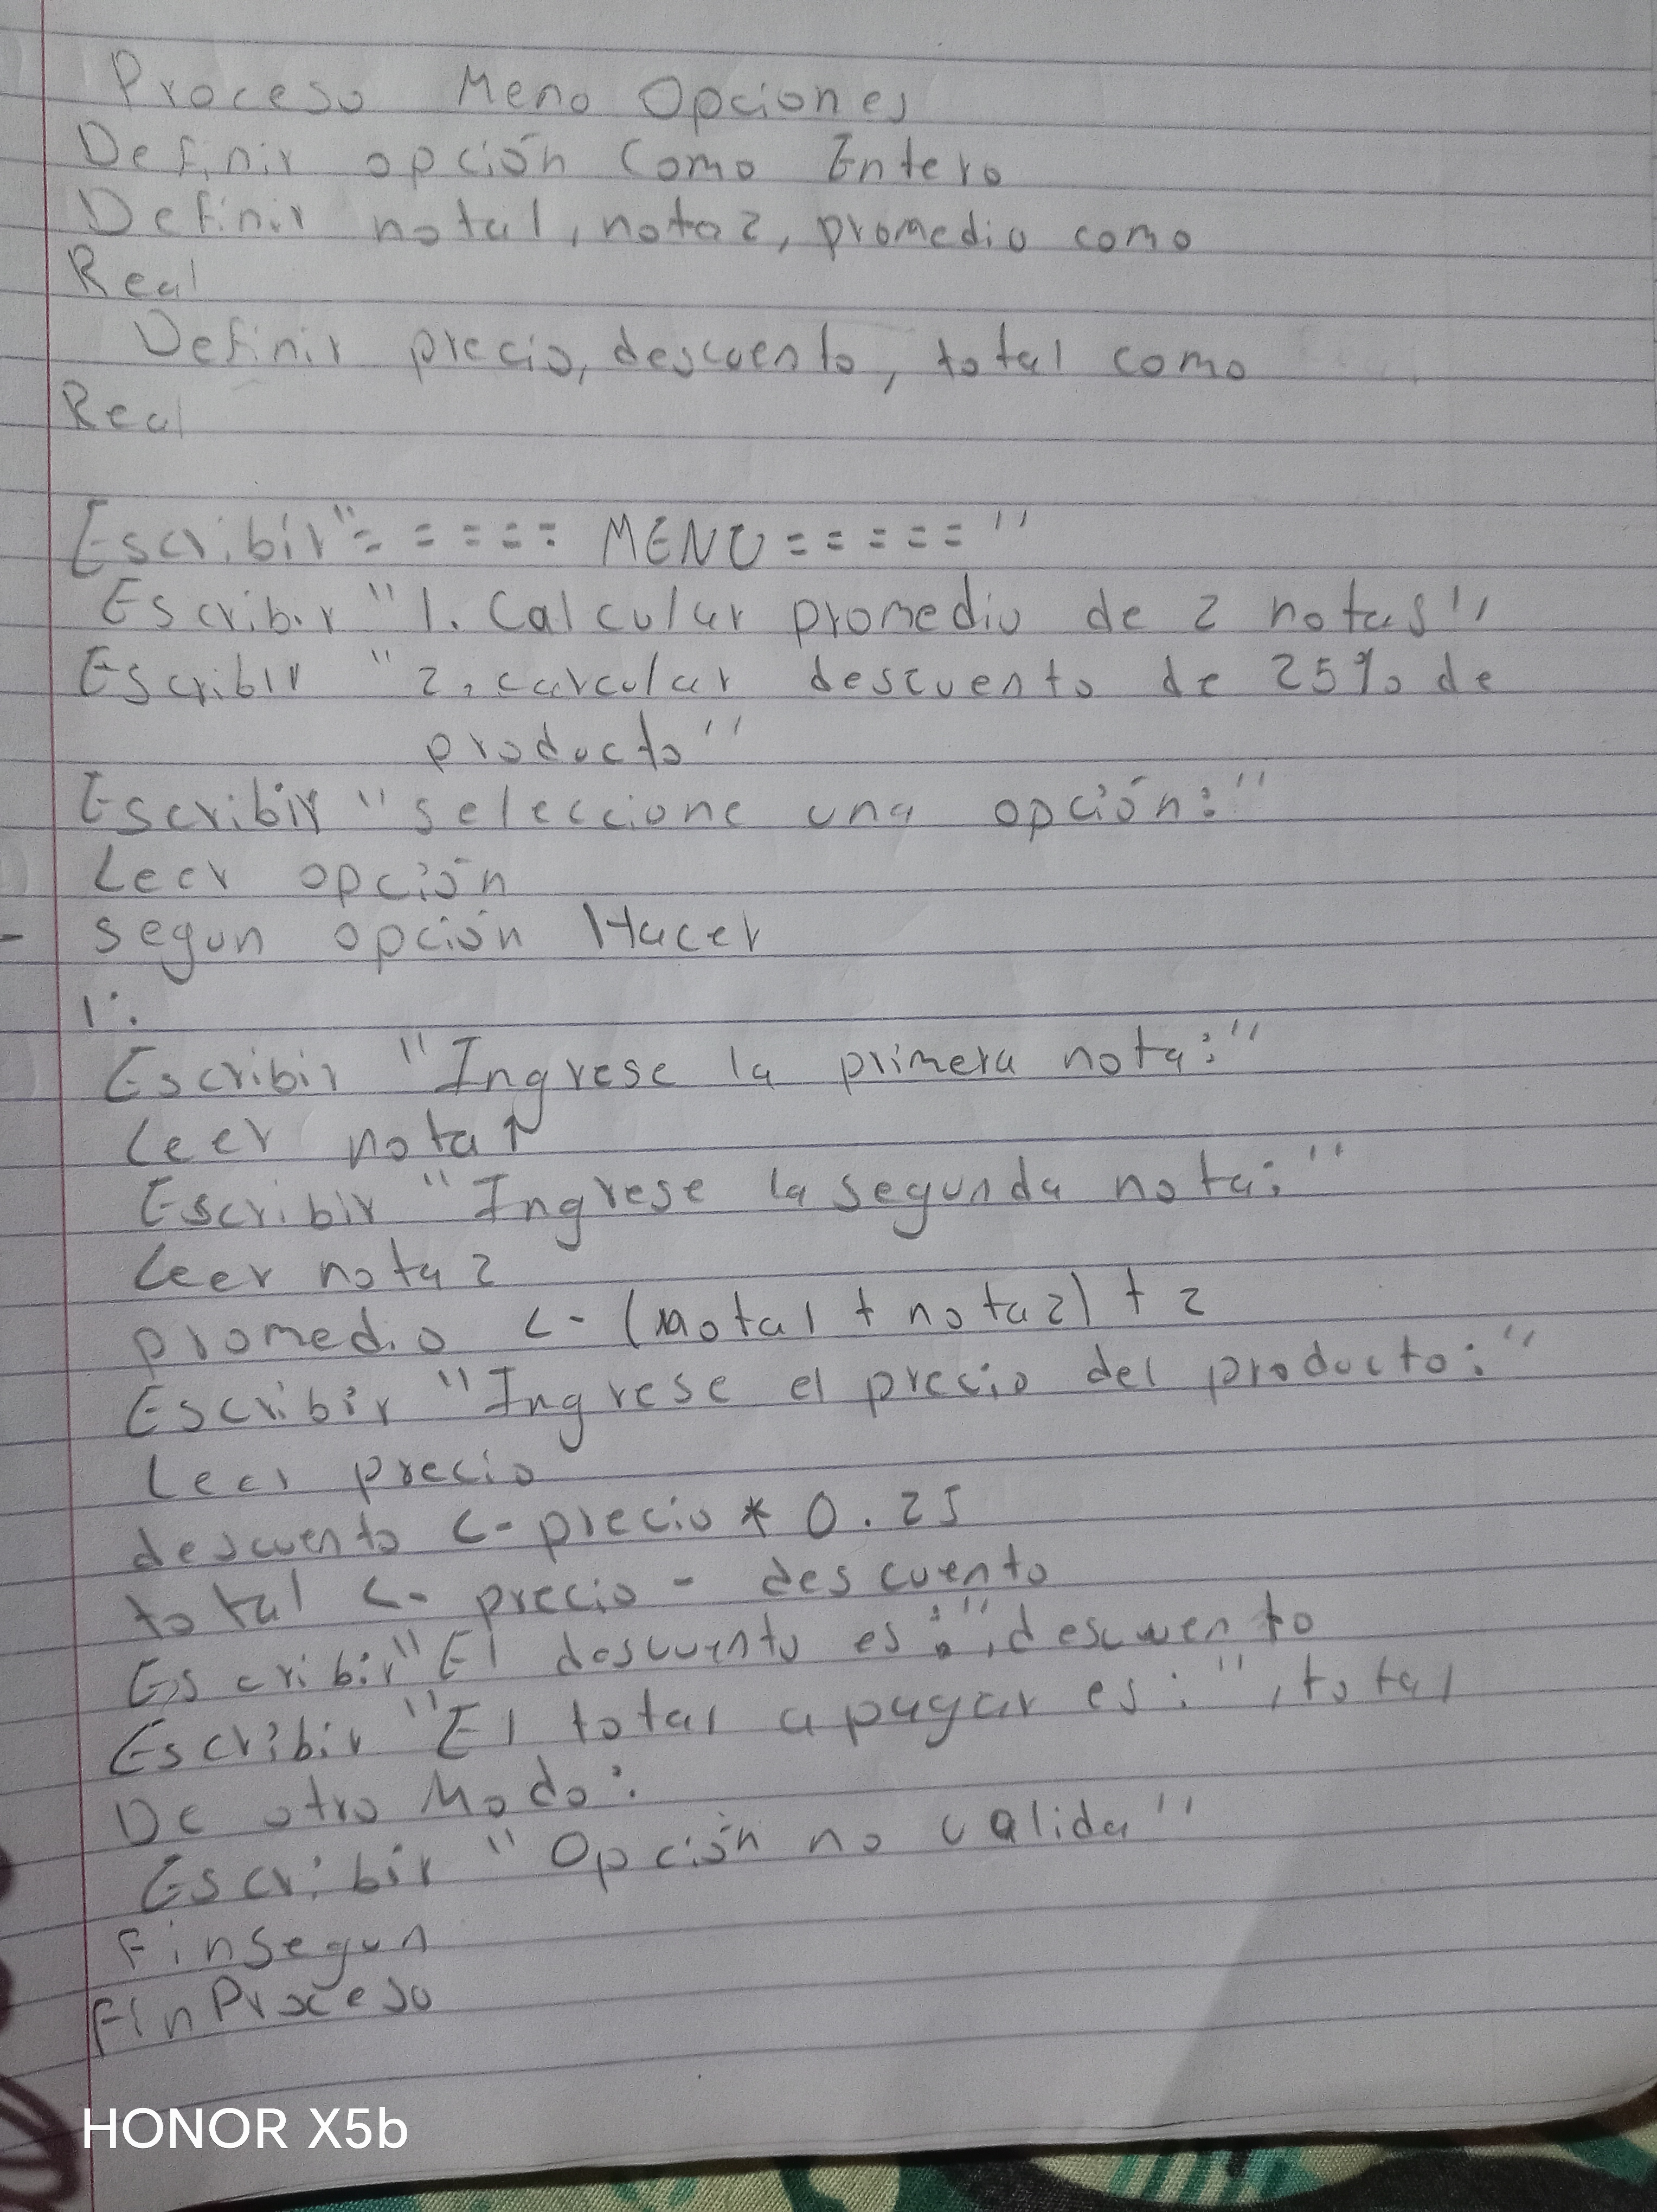 Proceso Meno Opciones
Definir opción Como Entero
Definir nota1, nota2, promedio como
Real
Definir precio, descuento, total como
Real
Escribir "===== MENU ====="
Escribir "1. Calcular promedio de 2 notas"
Escribir "2. carcular descuento de 25% de
producto"
Escribir "seleccione una opción:"
Leer opción
segun opción Hacer
1:
Escribir "Ingrese la primera nota:"
Leer nota1
Escribir "Ingrese la segunda nota:"
Leer nota2
promedio <- (nota1 + nota2) + 2
Escribir "Ingrese el precio del producto:"
Leer precio
descuento <- precio * 0.25
total <- precio - descuento
Escribir "El descuento es:", descuento
Escribir "El total a pagar es:", total
De otro Modo:
Escribir "Opción no valida"
FinSegun
FinProceso
HONOR X5b